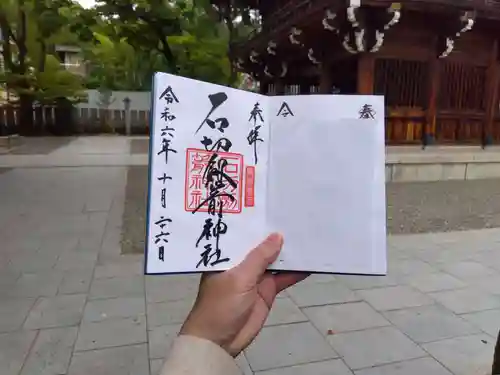 奉拝
石切劔箭神社
令和六年十月二十六日